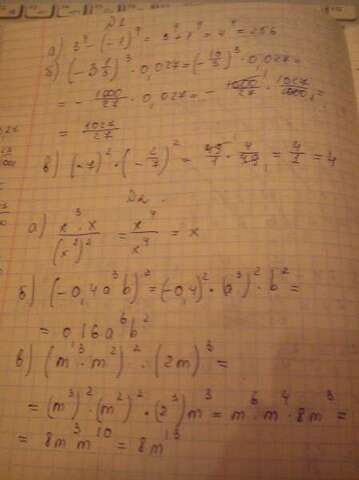 D1
а) 3⁴ - (-1)⁴ = 3⁴ + 1⁴ = 4⁴ = 256
б) (-3 1/3)³ · 0,027 = (-10/3)³ · 0,027 =
= - 1000/27 · 0,027 = - 1000/27 · 1027/1000 =
= 1027/27
в) (-7)² · (-2/7)² = 49/1 · 4/49 = 4/1 = 4
D2.
а) x³ · x/(x²)² = x⁴/x⁴ = x
б) (-0,4a³b)² = (-0,4)² · (a³)² · b² =
= 016a⁶b²
в) (m³ · m²)² · (2m)³ =
= (m³)² · (m²)² · (2³)m³ = m⁶ · m⁴ · 8m³ =
= 8m³m¹⁰ = 8m¹³